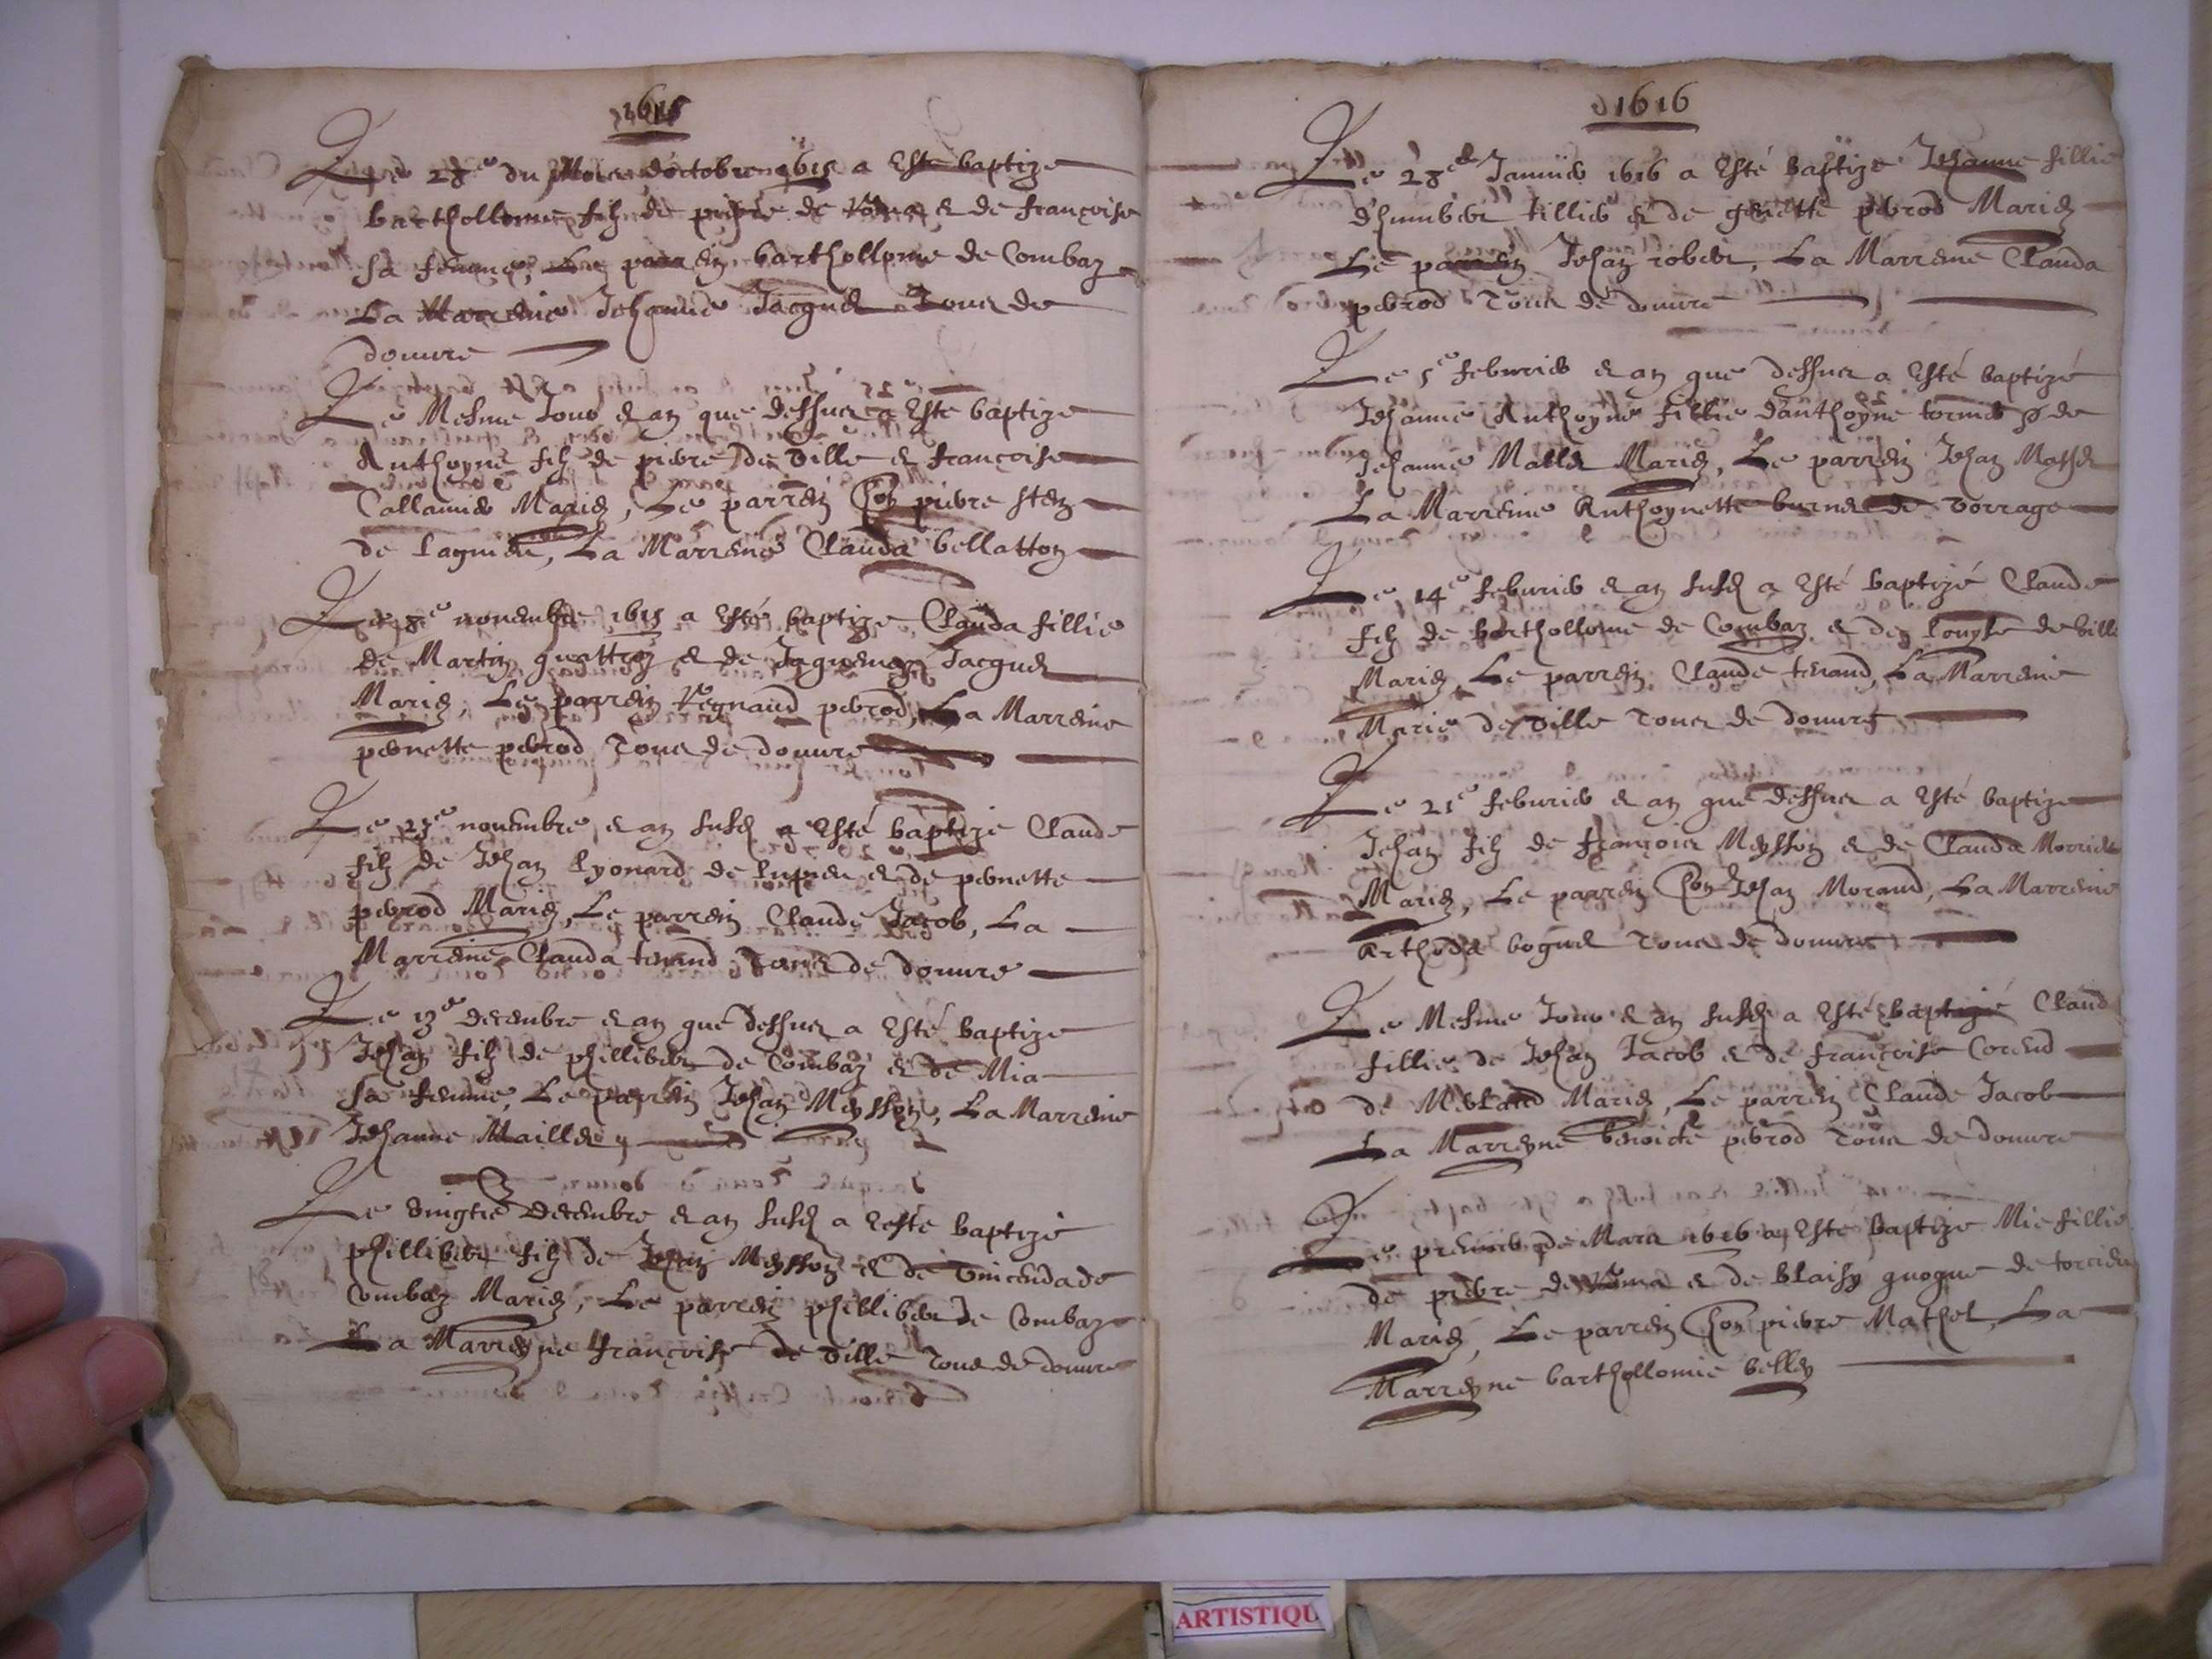 1615
Le 28e du Mois d'octobre 1615 a Esté baptize
barthollome filz de pierre de Roma & de françoise
sa femme, Le parrein barthollome de Combaz
La Marreine Jehanne Jacquet Tous de
douure
Le Mesme Jour & an que dessus a Esté baptize
Anthoyne filz de pierre de Ville & françoise
Callamier Mariez, Le parrein hon pierre
de lagnieu, La Marreine Clauda bellatton
Le 8e nouembre 1615 a Esté baptize Clauda fillie
de Martin & de Jacquet
Mariez, Le parrein Regnaud perrod, La Marreine
pernette perrod Tous de douure
Le 23e nouembre & an susd a Esté baptizé Claude
filz de Jehan lyonard de & de pernette
perrod Mariez, Le parrein Claude Jacob, La
Marreine Clauda tenand Tous de douure
Le 13e decembre & an que dessus a Esté baptize
Jehan filz de phillibert de Combaz & de Mia
sa femme, Le parrein Jehan Meysson, La Marreine
Jehanne Maillet
Le Vingtie decembre & an susd a esté baptizé
phillibert filz de Jehan Meysson & de Vincenda de
Combaz Mariez, Le parrein phillibert de Combaz
La Marreyne françoise de Ville Tous de douure
1616
Le 28e Januier 1616 a Esté baptize Jehanne fillie
d'humbert tillier & de perrod Mariez
Le parrein Jehan robert, La Marreine Clauda
perrod Tous de douure
Le 5e feburier & an que dessus a Esté baptizé
Jehanne Anthoyne fillie d'anthoyne tornier & de
Jehanne Mallet Mariez, Le parrein Jehan
La Marreine Anthoynette de
Le 14e feburier & an susd a Esté baptizé Claude
filz de barthollome de Combaz & de louyse de Ville
Mariez, Le parrein Claude tenand, La Marreine
Marie de Ville Tous de douure
Le 21e feburier & an que dessus a Esté baptize
Jehan filz de françois Meysson & de Clauda
Mariez, Le parrein hon Jehan Morand, La Marreine
Tous de douure
Le Mesme Jour & an susd a Esté baptizé Claud
fillie de Jehan Jacob & de françoise
de Mariez, Le parrein Claude Jacob
La Marreyne benoicte perrod Tous de douure
Le premier de Mars 1616 a Esté baptize Mie fillie
de pierre de Roma & de de torcieu
Mariez, Le parrein hon pierre Mathet, La
Marreyne barthollomie belley
ARTISTIQU